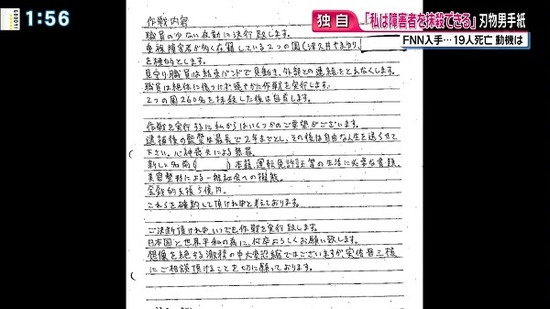 1:56
独自
「私は障害者を抹殺できる」刃物男手紙
FNN入手…19人死亡 動機は
作戦内容
職員の少ない夜勤に決行致します。
重複障害者が多く在籍している2つの園
を標的とします。
見守り職員は結束バンドで身動き、外部との連絡をとれなくします。
職員は絶対に傷つけず、速やかに作戦を実行します。
2つの園260名を抹殺した後は自首します。
作戦を実行するに私からはいくつかのご要望がございます。
逮捕後の監禁は最長で2年までとし、その後は自由な人生を送らせて
下さい。心神喪失による無罪
新しい名前( )本籍、運転免許証等の生活に必要な書類
美容整形による一般社会への擬態
金銭的支援5億円。
これらを確約して頂ければと考えております。
ご決断頂ければ、いつでも作戦を実行致します。
日本国と世界平和の為に、何卒よろしくお願い致します。
想像を絶する激務の中大変恐縮ではございますが、安倍晋三様
にご相談頂けることを切に願っております。